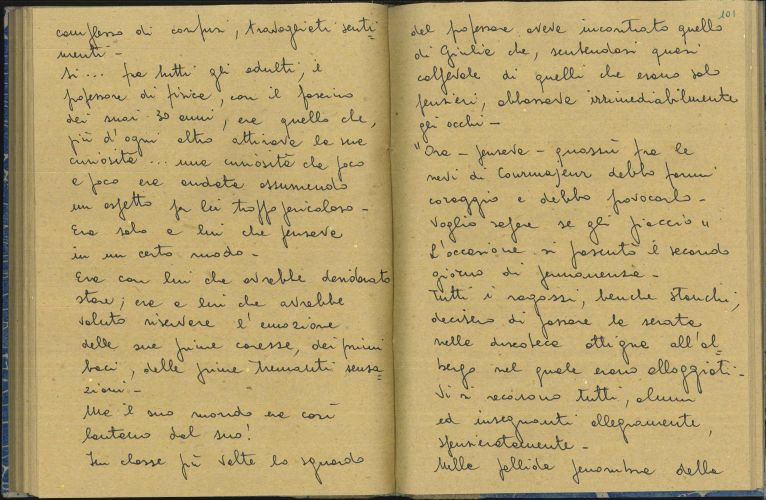 complesso di confusi, travagliati senti=
menti -
Si... fra tutti gli adulti, il
professore di fisica, con il fascino
dei suoi 30 anni, era quello che,
più d'ogni altro attirava la sua
curiosità... una curiosità che poco
a poco era andata assumendo
un aspetto per lei troppo pericoloso -
Era solo a lui che pensava
in un certo modo -
Era con lui che avrebbe desiderato
stare; era a lui che avrebbe
voluto ricevere l'emozione
delle sue prime carezze, dei primi
baci, delle prime tremanti sensa=
zioni -
Ma il suo mondo era così
lontano dal suo!
In classe più volte lo sguardo
101
del professore aveva incontrato quello
di Giulia che, sentendosi quasi
colpevole di quelli che erano solo
pensieri, abbassava irrimediabilmente
gli occhi -
"Ora - pensava - quassù fra le
nevi di Courmajeur debbo farmi
coraggio e debbo provocarlo -
Voglio sapere se gli piaccio"
L'occasione si presentò il secondo
giorno di permanenza -
Tutti i ragazzi, benchè stanchi,
decisero di passare la serata
nella discoteca attigua all'al=
bergo nel quale erano alloggiati -
Vi si recarono tutti, alunni
ed insegnanti allegramente,
spensieratamente -
Nella pallida penombra della